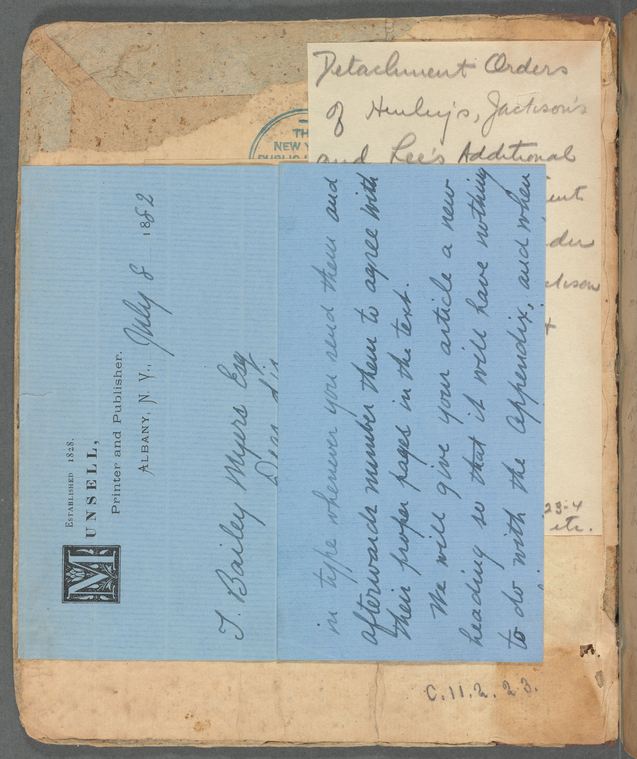 Detachment Orders
of Henley's, Jackson's
and Lee's Additional
23-4
etc.
TH
NEW Y
ESTABLISHED 1828.
MUNSELL,
Printer and Publisher.
ALBANY, N. Y., July 8 1882
T. Bailey Myers Esq
Dear Sir
in type whenever you send them and
afterwards number them to agree with
their proper pages in the text.
We will give your article a new
heading so that it will have nothing
to do with the appendix, and when
C.11.2.23.
M.